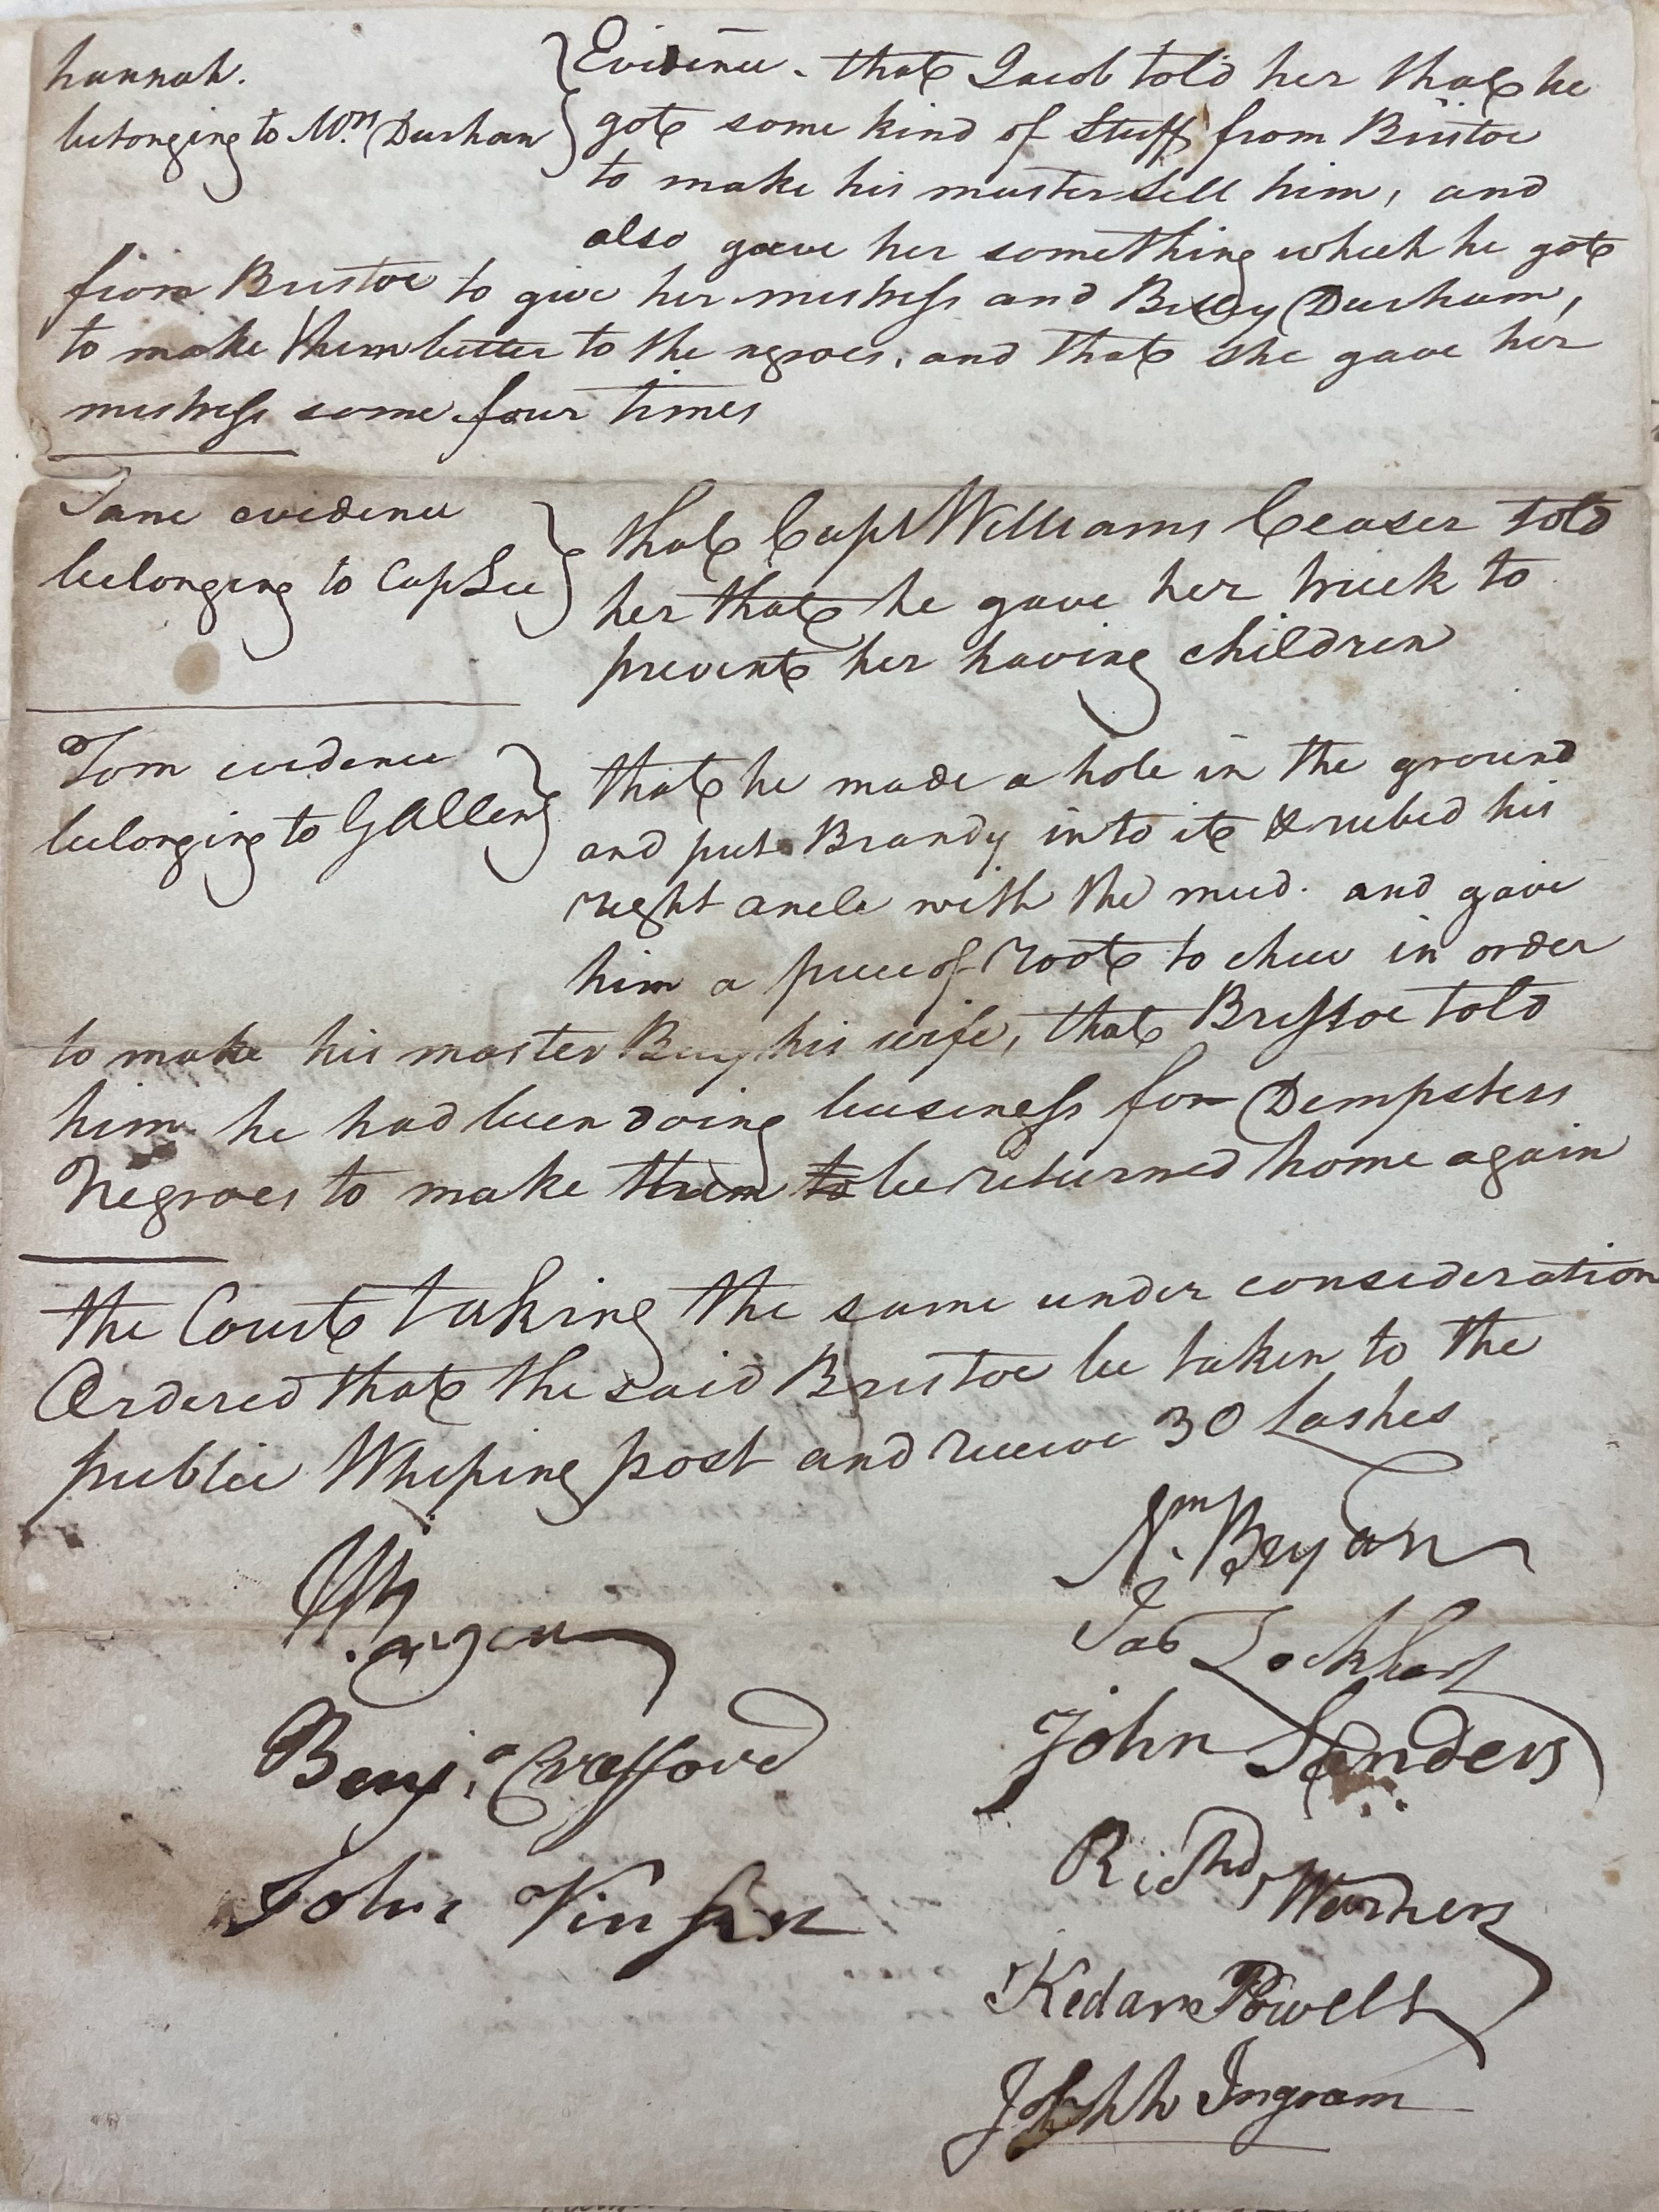 hannah.
belonging to Mrs. Durham
Evidence - that Jacob told her that he
got some kind of Stuff from Bristoe
to make his master Sell him, and
also gave her something which he got
from Bristoe to give her mistress and Billy Durham,
to make them better to the negroes, and that she gave her
mistress some four times
Jane evidence
belonging to Cap Lee
that Capt Williams Ceaser told
her that he gave her trick to
prevent her having children
Tom evidence
belonging to G Allens
that he made a hole in the ground
and put Brandy into it & rubed his
right ancle with the mud. and gave
him a piece of root to chew in order
to make his master Buy his wife, that Bristoe told
him he had been doing business for Dempsters
Negroes to make them to be returned home again
the Court taking the same under consideration
Ordered that the said Bristoe be taken to the
public Whiping post and receive 30 Lashes
Bryan
Jas Lockhart
John Sanders
Richd
Kedar Powell
Joseph Ingram
Benja
John Vinson